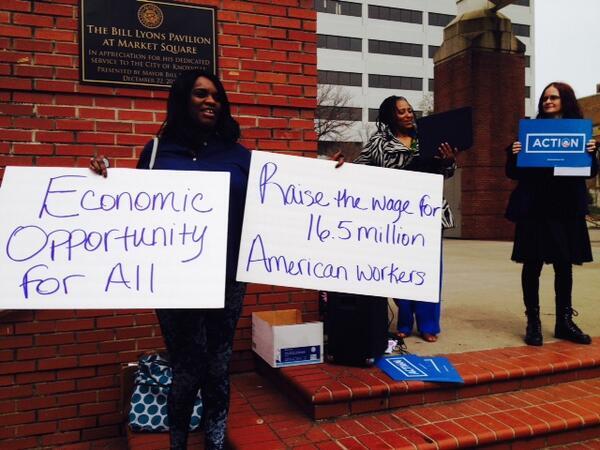 THE BILL LYONS PAVILION
AT MARKET SQUARE
IN APPRECIATION FOR HIS DEDICATED
SERVICE TO THE CITY OF KNOXVILLE
PRESENTED BY MAYOR BILL
DECEMBER 22,
Economic
Opportunity
for All
Raise the wage for
16.5 million
American workers
ACTION